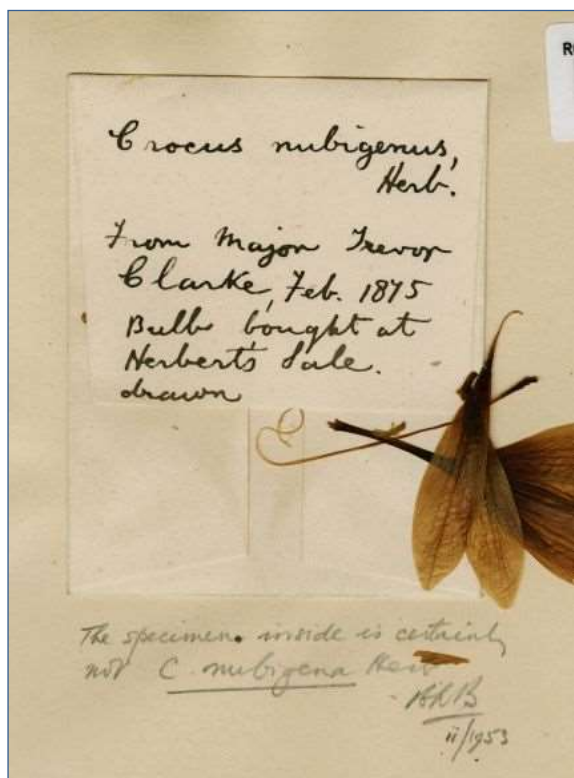 R
Crocus nubigenus,
Herb.
From Major Trevor
Clarke, Feb. 1875
Bulb bought at
Herbert's Sale.
drawn
The specimen inside is certainly
not C. nubigena Herb
II/1953